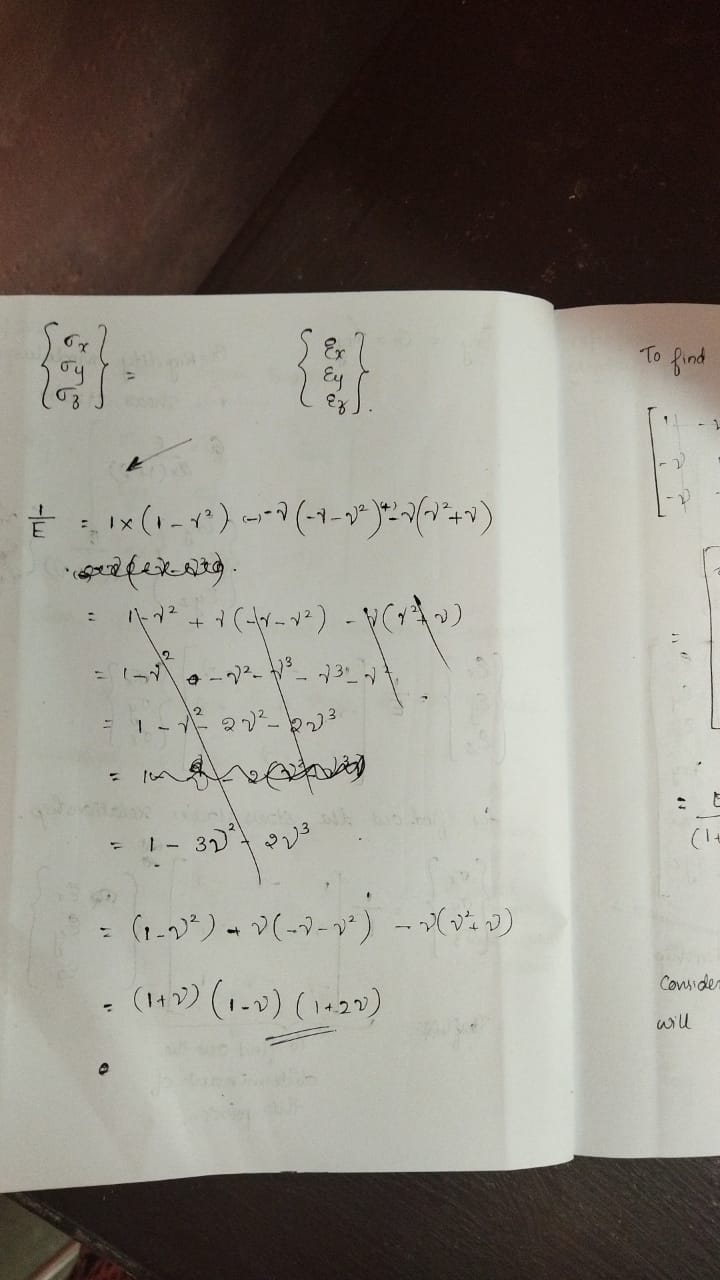 {σx σy σz} = {εx εy εz}.
1/E = 1×(1-ν²) (-) -ν(-ν-ν²) (+) -ν(ν²+ν)
= 1-ν² + ν(-ν-ν²) - ν(ν²+ν)
= 1-ν² -ν²-ν³-ν³-ν²
= 1-ν²-2ν²-2ν³
= 1-3ν²-2ν³
= (1-ν²)+ν(-ν-ν²) -ν(ν²+ν)
= (1+ν)(1-ν)(1+2ν)
To find
[1 -ν
-ν
-ν
=
=
(1+
Consider
will